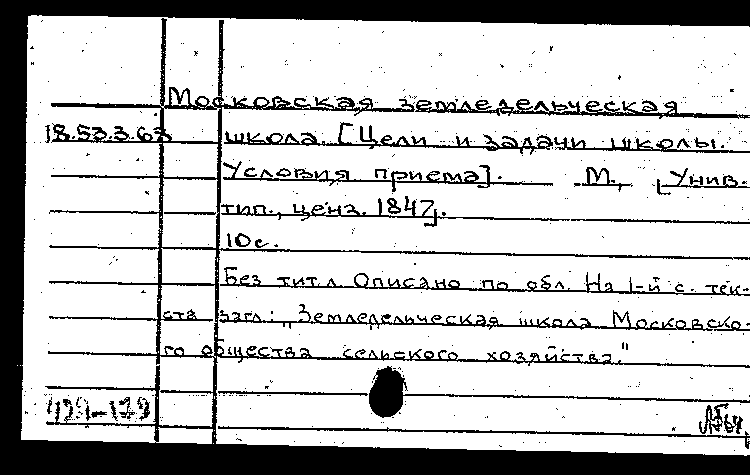 Московская земледельческая
18.53.3.68 школа [Цели и задачи школы.
Условия приема]. М., [Унив.
тип., ценз. 1847].
10с.
Без тит л Описано по обл. На 1-й с. тек-
ста загл: „Земледельческая школа Московско-
го общества сельского хозяйства."